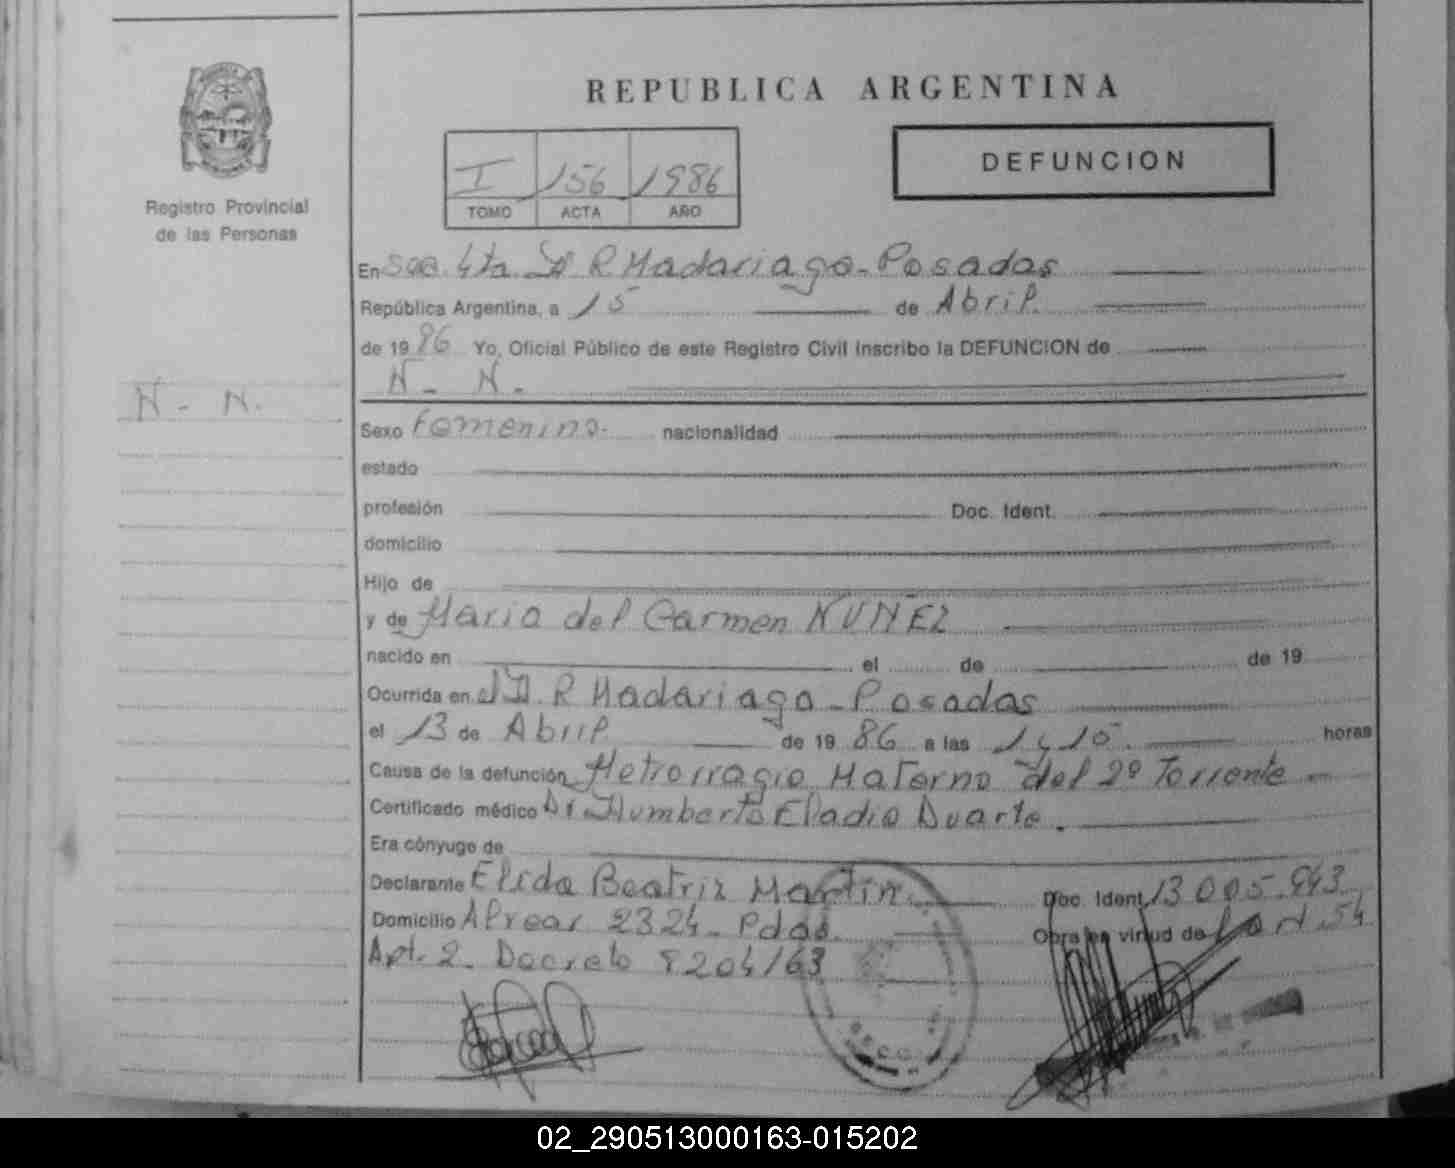 REPUBLICA ARGENTINA
I 156 1986
TOMO ACTA AÑO
DEFUNCION
Registro Provincial
de las Personas
En Scc. 4ta. H R Madariaga - Posadas
República Argentina, a 15 de Abril.
de 1986 Yo, Oficial Público de este Registro Civil Inscribo la DEFUNCION de
N - N.
N - N.
Sexo Femenino. nacionalidad
estado
profesión Doc. Ident.
domicilio
Hijo de
y de Maria del Carmen NUÑEZ
nacido en el de de 19
Ocurrida en el H. R Madariaga - Posadas
el 13 de Abril de 1986 a las 1 y 10. horas
Causa de la defunción Metrorragia Materno del 2º
Certificado médico Dr Humberto Eladio Duarte.
Era cónyuge de
Declarante Elida Beatriz Martin. Doc. Ident. 13.005.943
Domicilio Alvear 2324 - Pdas. Obra en virtud de
Art. 2 - Decreto 8204/63
02_290513000163-015202